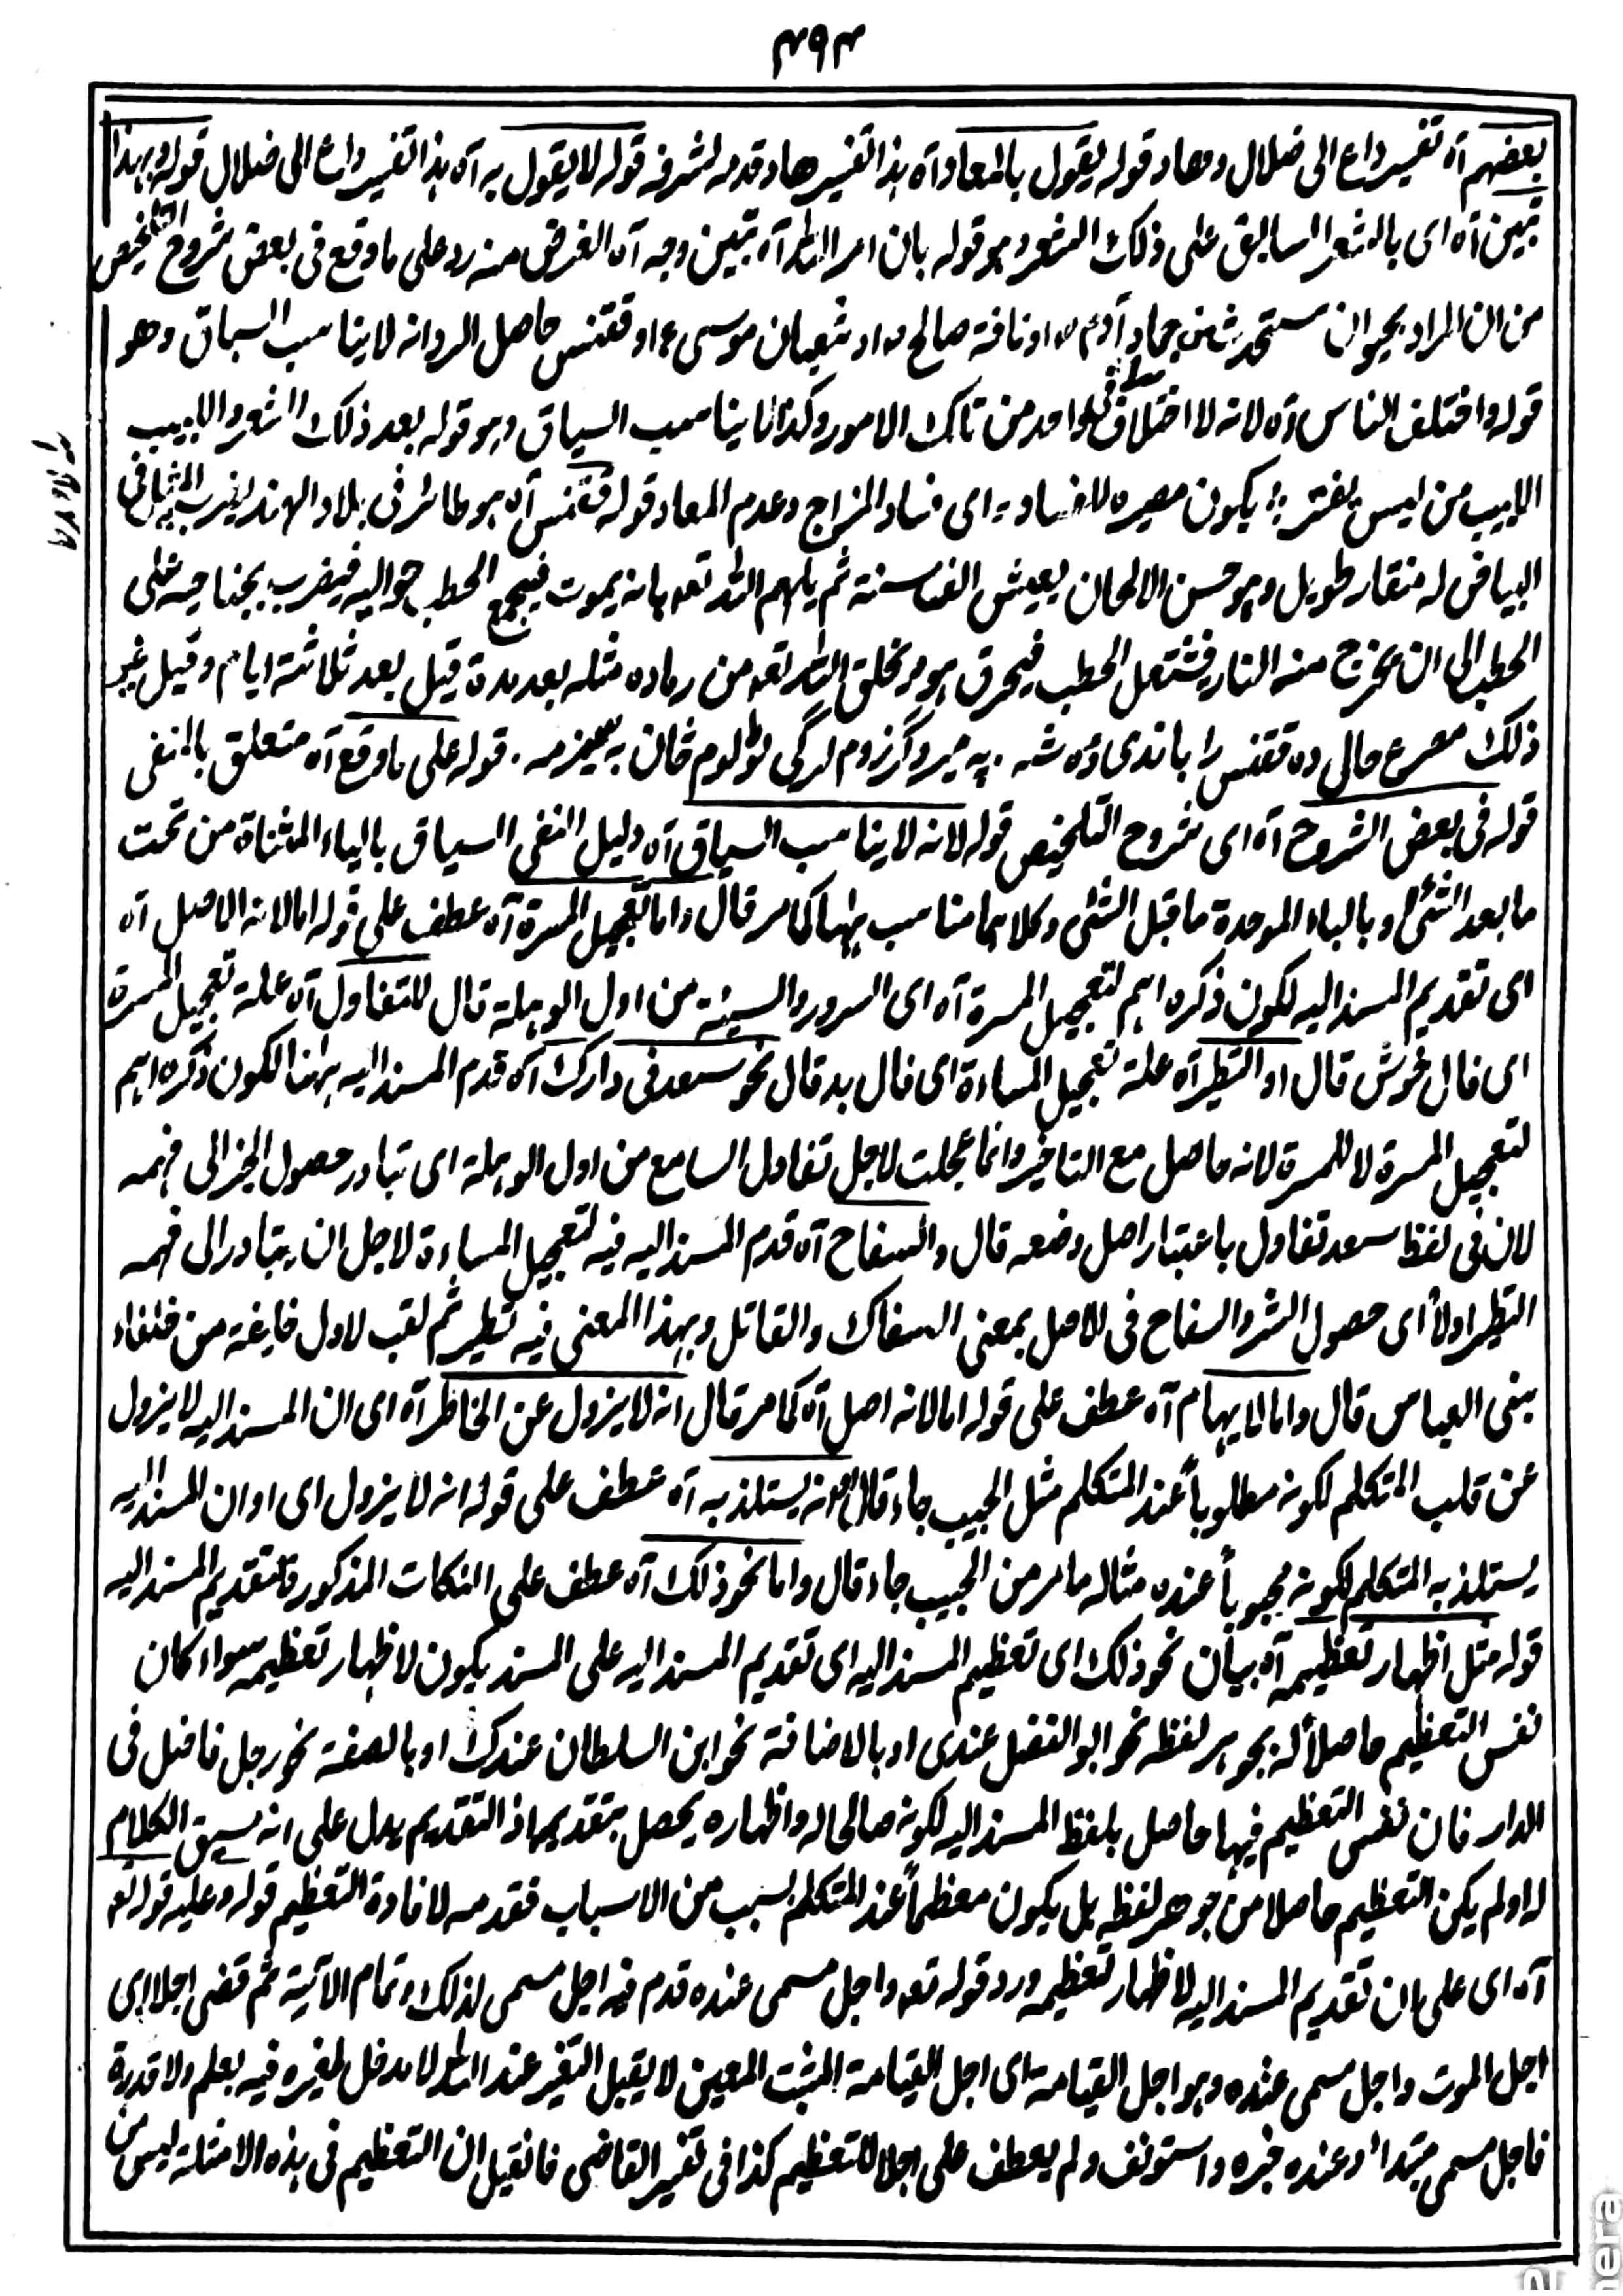 ۴۹۴
بعضهم آه تفسیر داع الی ضلال وهاد قوله یقول بالمعاد آه هذا تفسیر هاد قدمه لشرفه قوله لا یقول به آه هذا تفسیر داع الی ضلال قوله وبهذا
تبین آه ای بالشعر السابق علی ذلک الشعر وهو قوله بان امر الاله آه تبین وجه آه الغرض منه رد علی ما وقع فی بعض شروح التلخیص
من ان المراد بحیوان مستحدث من جماد آدم او ناقة صالح او ثعبان موسی او ققنس حاصل الرد انه لا یناسب السباق وهو
قوله واختلف الناس آه لانه لا اختلاف فی واحد من تلک الامور وکذا لا یناسب السیاق وهو قوله بعد ذلک الشعر واللبیب
اللبیب من لیس یغتر ؛ بکون مصیره للفساد ؛ ای فساد المزاج وعدم المعاد قوله ققنس آه هو طائر فی بلاد الهند یضرب المثل فی
البیاض له منقار طویل وهو حسن الالحان یعیش الف سنة ثم یلهم الله تعه بانه یموت فیجمع الحطب حوالیه فیضرب بجناحیه علی
الحطب الی ان یخرج منه النار فیشتعل الحطب فیحرق هو ویخلق الله تعه من رماده مثله بعد مدة قیل بعد ثلاثة ایام وقیل غیر
ذلک مصرع حالی ده ققنس را باندی وه شه . په میروگرزوم لرگی ټولوم ځان به سیزمه . قوله علی ما وقع آه متعلق بالمنفی
قوله فی بعض الشروح آه ای شروح التلخیص قوله لانه لا یناسب السیاق آه دلیل النفی السیاق بالیاء المثناة من تحت
ما بعد الشئ وبالباء الموحدة ما قبل الشئ وکلاهما مناسب ههنا کما مر قال واما لتعجیل المسرة آه عطف علی قوله اما لانه الاصل آه
ای تقدیم المسند الیه لکون ذکره اهم لتعجیل المسرة آه ای السرور والسیئة من اول الوهلة قال للتفاول آه علة تعجیل المسرة
ای فال خوش قال او التطیر آه علة تعجیل المساءة ای فال بد قال نحو سعد فی دارک آه قدم المسند الیه ههنا لکون ذکره اهم
لتعجیل المسرة لا للمسرة لانه حاصل مع التاخیر وانما عجلت لاجل تفاول السامع من اول الوهلة ای تبادر حصول الخیر الی فهمه
لان فی لفظ سعد تفاول باعتبار اصل وضعه قال والسفاح آه قدم المسند الیه فیه لتعجیل المساءة لاجل ان یتبادر الی فهمه
التطیر اولاً ای حصول الشر والسفاح فی الاصل بمعنی السفاک والقاتل وبهذا المعنی فیه تطیر ثم لقب لاول خلیفة من خلفاء
بنی العباس قال واما لایهام آه عطف علی قوله اما لانه اصل آه کما مر قال انه لا یزول عن الخاطر آه ای ان المسند الیه لا یزول
عن قلب المتکلم لکونه مطلوباً عند المتکلم مثل الحبیب جاء قال او انه یستلذ به آه عطف علی قوله انه لا یزول ای او ان المسند الیه
یستلذ به المتکلم لکونه محبوباً عنده مثاله ما مر من الحبیب جاء قال واما نحو ذلک آه عطف علی النکات المذکورة لتقدیم المسند الیه
قوله مثل اظهار تعظیمه آه بیان نحو ذلک ای تعظیم المسند الیه ای تقدیم المسند الیه علی المسند یکون لاظهار تعظیمه سواء کان
نفس التعظیم حاصلاً له بجوهر لفظه نحو ابو الفضل عندی او بالاضافة نحو ابن السلطان عندک او بالصفة نحو رجل فاضل فی
الدار فان نفس التعظیم فیها حاصل بلفظ المسند الیه لکونه صالحا له واظهاره یحصل بتقدیمها اذ التقدیم یدل علی انه سیق الکلام
له او لم یکن التعظیم حاصلا من جوهر لفظه بل یکون معظماً عند المتکلم بسبب من الاسباب فقدمه لافادة التعظیم قوله وعلیه قوله تعه
آه ای علی ان تقدیم المسند الیه لاظهار تعظیمه ورد قوله تعه واجل مسمی عنده قدم فیه اجل مسمی لذلک وتمام الآیة ثم قضی اجلا ای
اجل الموت واجل مسمی عنده وهو اجل القیامة ای اجل القیامة المثبت المعین لا یقبل التغیر عند الله لا مدخل لغیره فیه بعلم ولا قدرة
فاجل مسمی مبتدأ وعنده خبره واستونف ولم یعطف علی اجلا للتعظیم کذا فی تفسیر القاضی فانقیل ان التعظیم فی هذه الامثلة لیس من